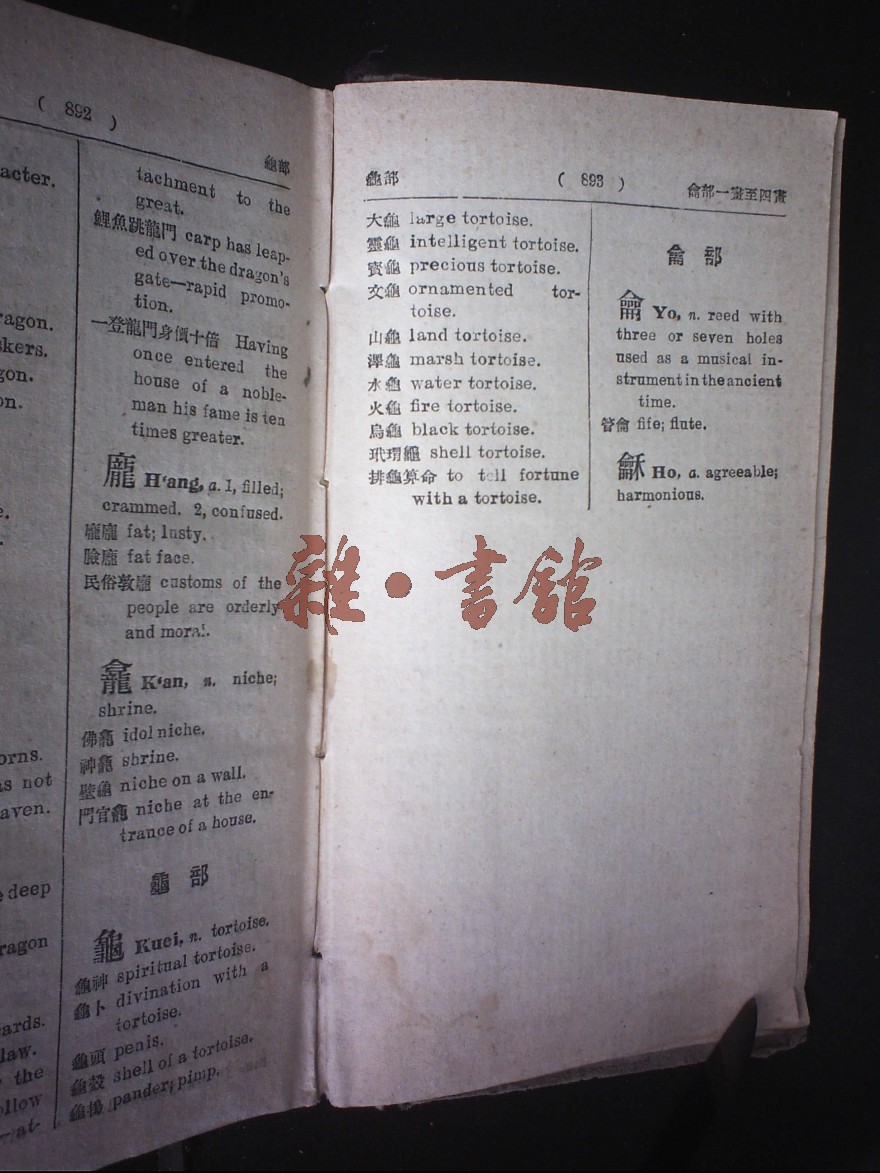 ( 892 )
龜部
acter.
ragon.
skers.
gon.
on.
e.
orns.
as not
aven.
e deep
ragon
ards.
law.
the
ollow
—at-
tachment to the
great.
鯉魚跳龍門 carp has leap-
ed over the dragon's
gate—rapid promo-
tion.
一登龍門身價十倍 Having
once entered the
house of a noble-
man his fame is ten
times greater.
龐 H‘ang, a. 1, filled;
crammed. 2, confused.
龐龐 fat; lusty.
臉龐 fat face.
民俗敦龐 customs of the
people are orderly
and moral.
龕 K‘an, n. niche;
shrine.
佛龕 idol niche.
神龕 shrine.
壁龕 niche on a wall.
門官龕 niche at the en-
trance of a house.
龜部
龜 Kuei, n. tortoise.
龜神 spiritual tortoise.
龜卜 divination with a
tortoise.
龜頭 penis.
龜殼 shell of a tortoise.
龜鴇 pander; pimp.
龜部
( 893 )
龠部一畫至四畫
大龜 large tortoise.
靈龜 intelligent tortoise.
寳龜 precious tortoise.
文龜 ornamented tor-
toise.
山龜 land tortoise.
澤龜 marsh tortoise.
水龜 water tortoise.
火龜 fire tortoise.
烏龜 black tortoise.
玳瑁龜 shell tortoise.
排龜算命 to tell fortune
with a tortoise.
龠部
龠 Yo, n. reed with
three or seven holes
used as a musical in-
strument in the ancient
time.
管龠 fife; flute.
龢 Ho, a. agreeable;
harmonious.
雜·書館